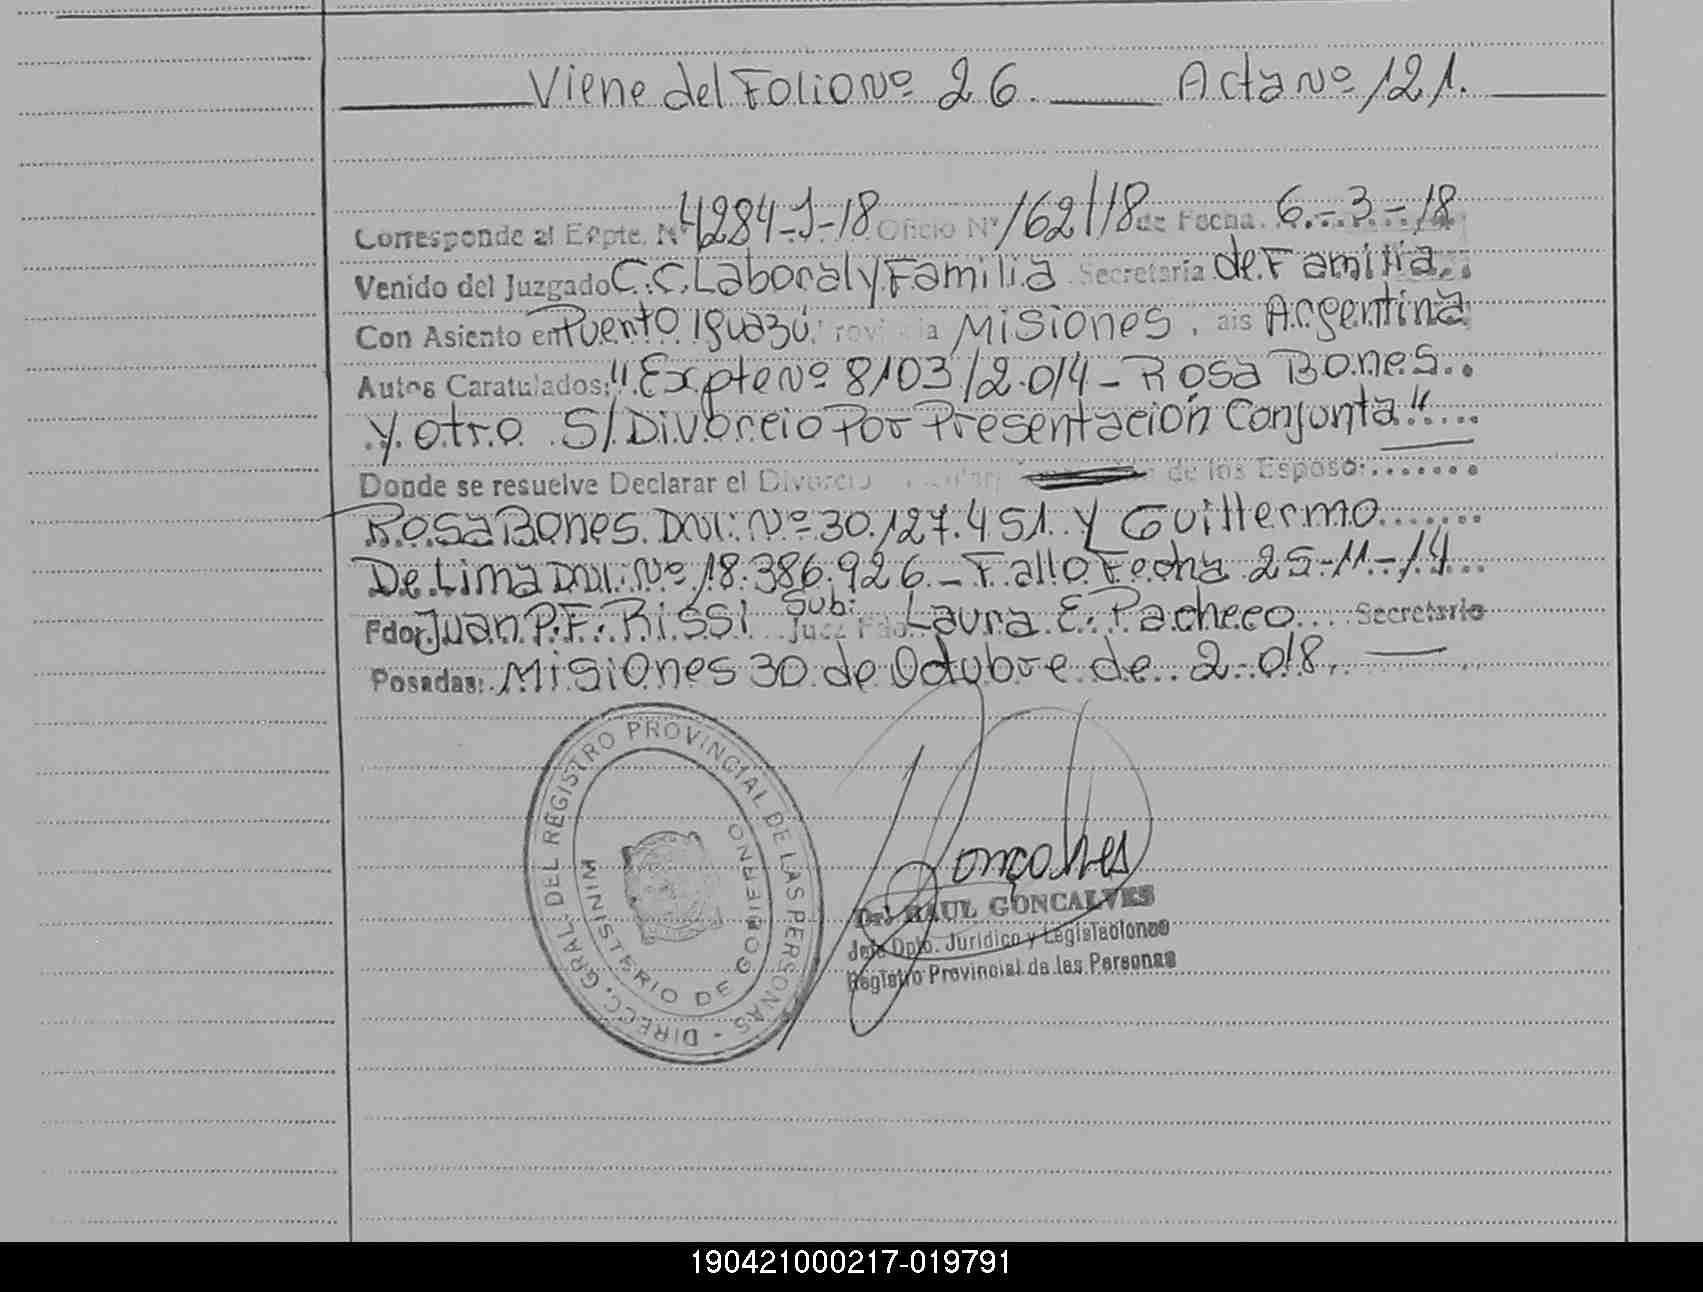 Viene del Folio Nº 26. Acta Nº 121.
Corresponde al Expte. Nº 4284-J-18 Oficio Nº 162/18 de Fecha 6.-3-18
Venido del Juzgado C.C. Laboral y Familia Secretaria de Familia..
Con Asiento en Puerto Iguazú Provincia Misiones, ais Argentina
Autos Caratulados: "Expte Nº 8103/2.014 - Rosa Bones..
y otro S/ Divorcio Por Presentación Conjunta"....
Donde se resuelve Declarar el Divorcio de los Esposo:.......
Rosa Bones. DNI: Nº 30.127.451. y Guillermo.......
De Lima DNI: Nº 18.386.926.- Fallo Fecha 25-11-14...
Fdor Juan P.F. Rissi Sub: Juez Fdo. Laura E. Pacheco.... Secretario
Posadas: Misiones 30 de Octubre de 2.018.
DIRECC. GRAL. DEL REGISTRO PROVINCIAL DE LAS PERSONAS -
MINISTERIO DE GOBIERNO
Goncalves
Dr. RAUL GONCALVES
Jefe Dpto. Jurídico y Legislaciones
Registro Provincial de las Personas
190421000217-019791